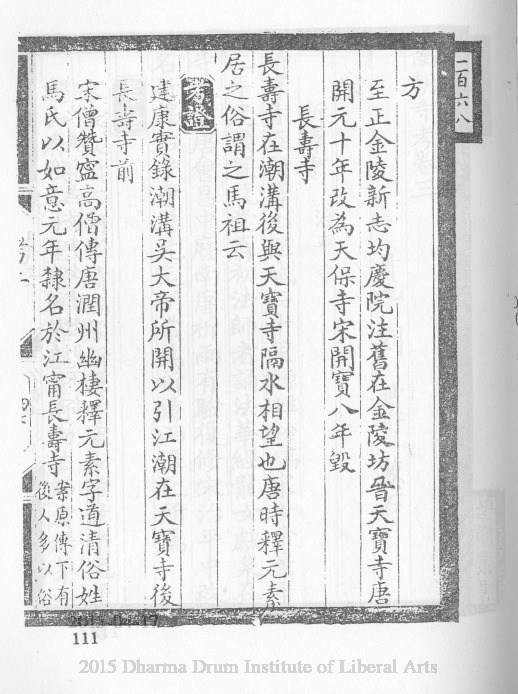 一百六八
方
至正金陵新志均慶院注舊在金陵坊晉天寶寺唐
開元十年改為天保寺宋開寶八年毀
長壽寺
長壽寺在潮溝後與天寶寺隔水相望也唐時釋元素
居之俗謂之馬祖云
考證
建康實錄潮溝吳大帝所開以引江潮在天寶寺後
長壽寺前
宋僧贊寧高僧傳唐潤州幽棲釋元素字道清俗姓
馬氏以如意元年隸名於江甯長壽寺案原傳下有
後人多以俗
2015-04-17
111
2015 Dharma Drum Institute of Liberal Arts